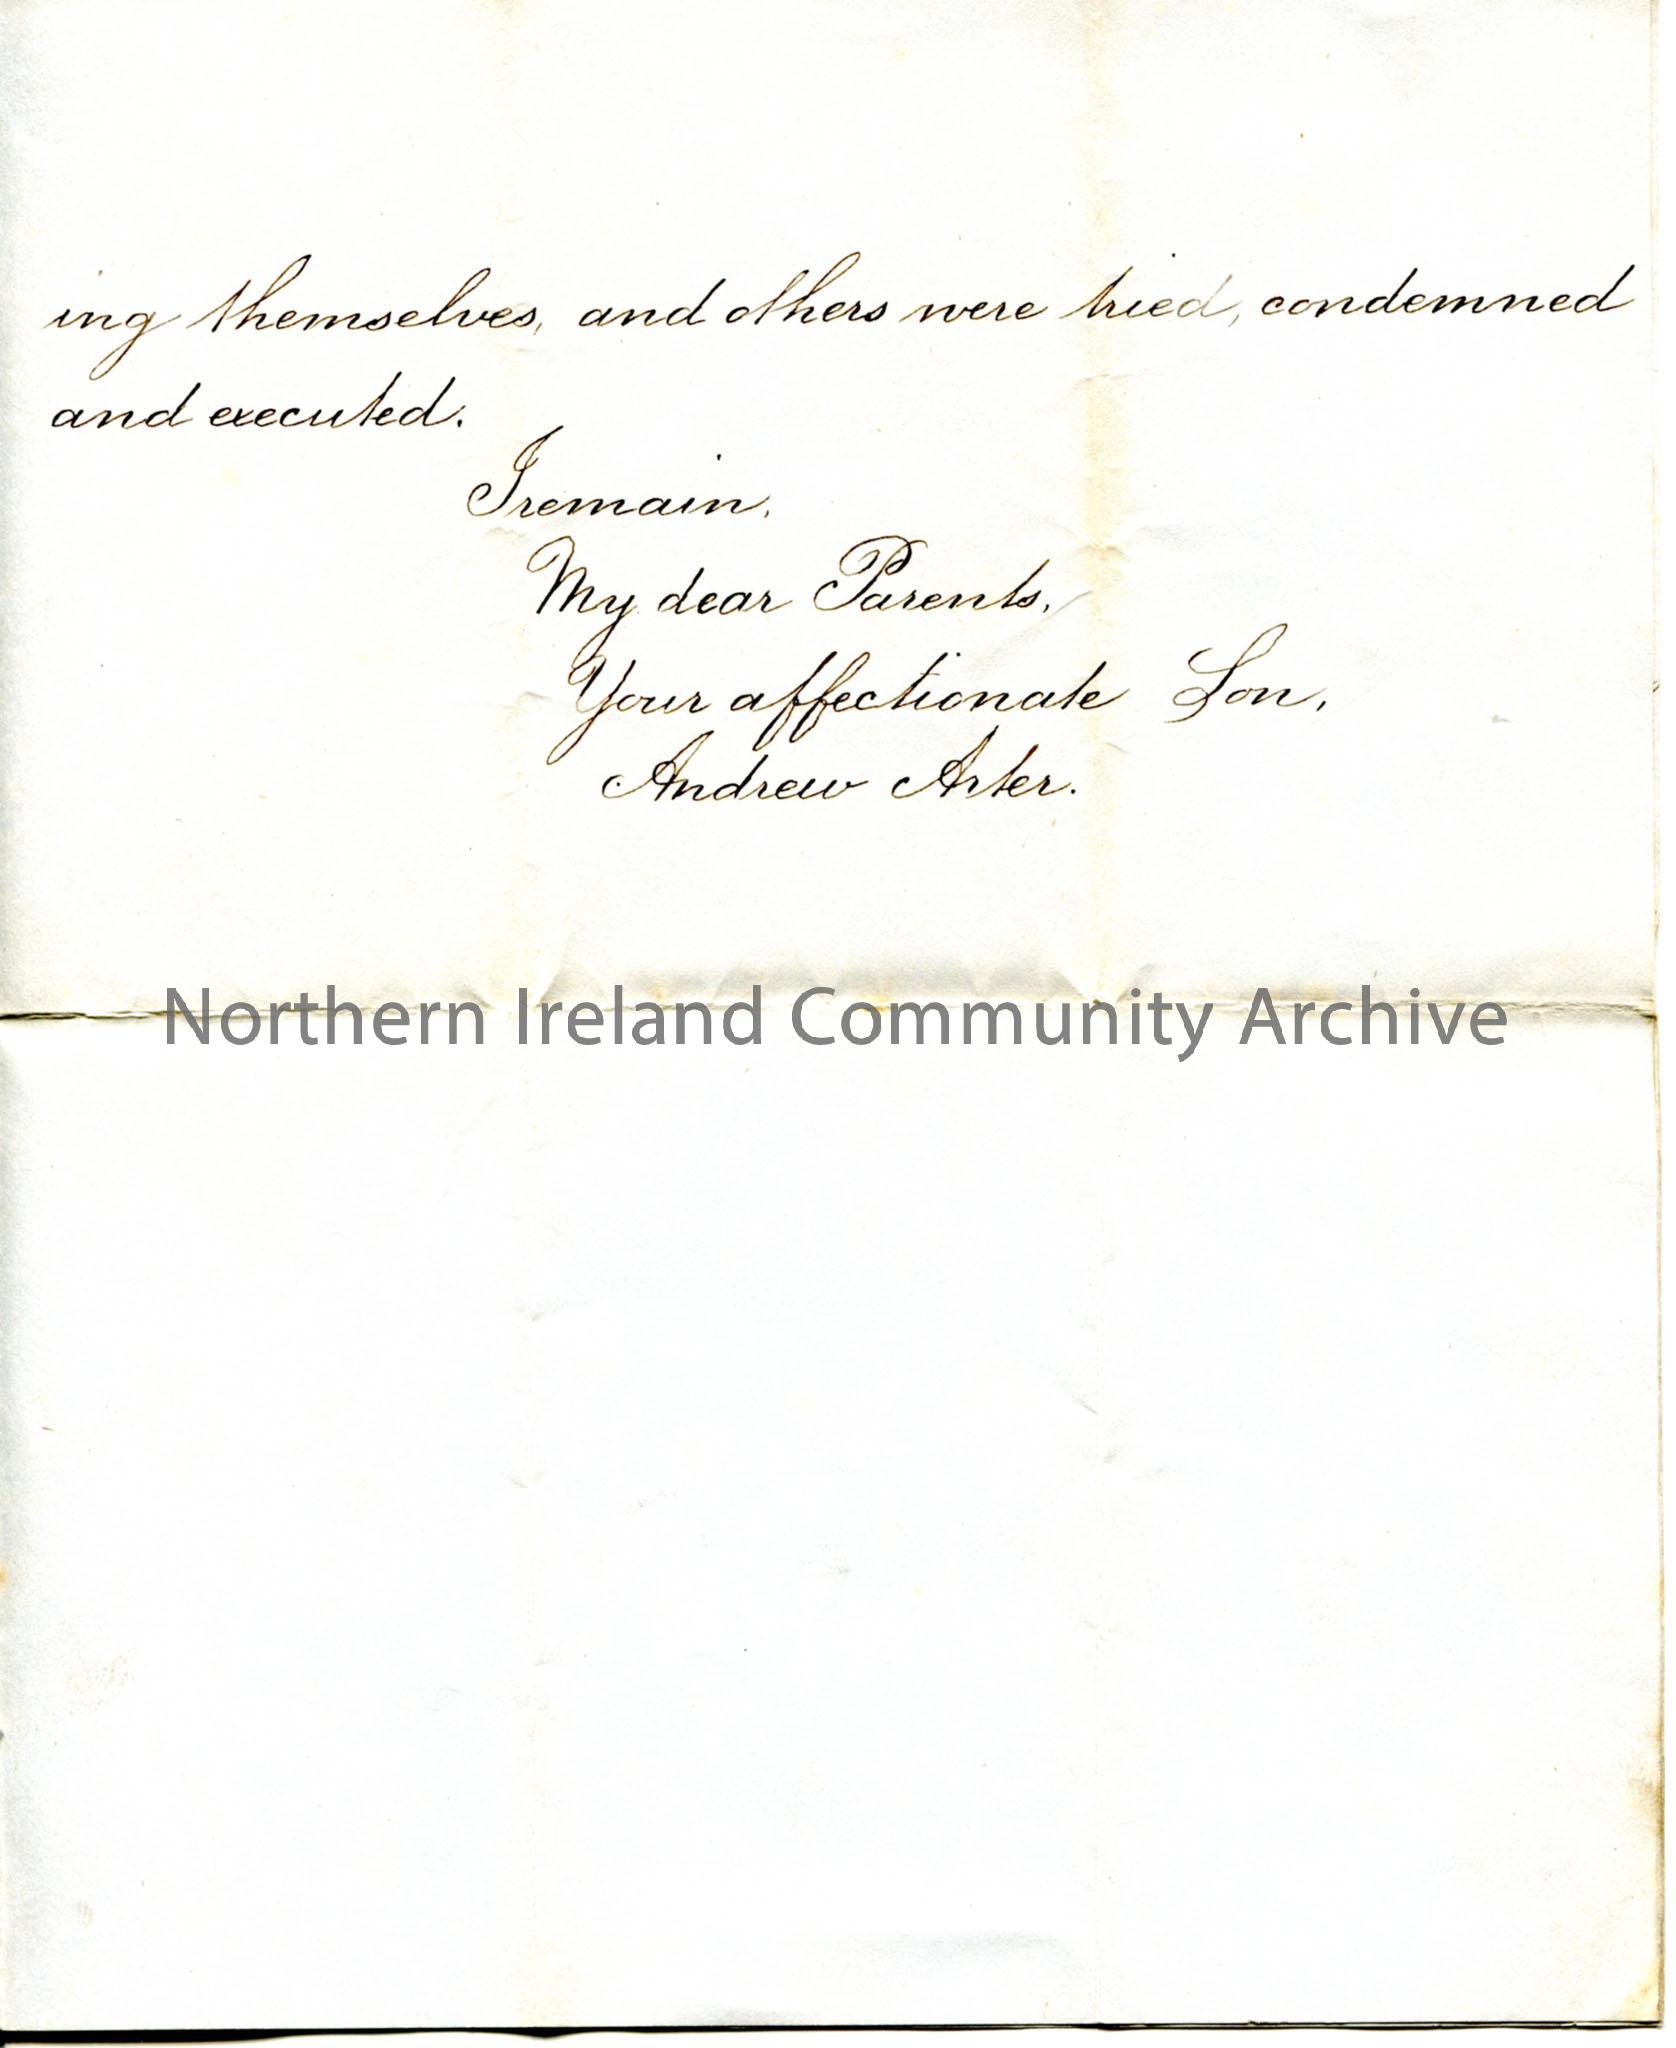 ing themselves, and others were tried, condemned
and executed.
I remain,
My dear Parents,
Your affectionate Son,
Andrew Arter.
Northern Ireland Community Archive